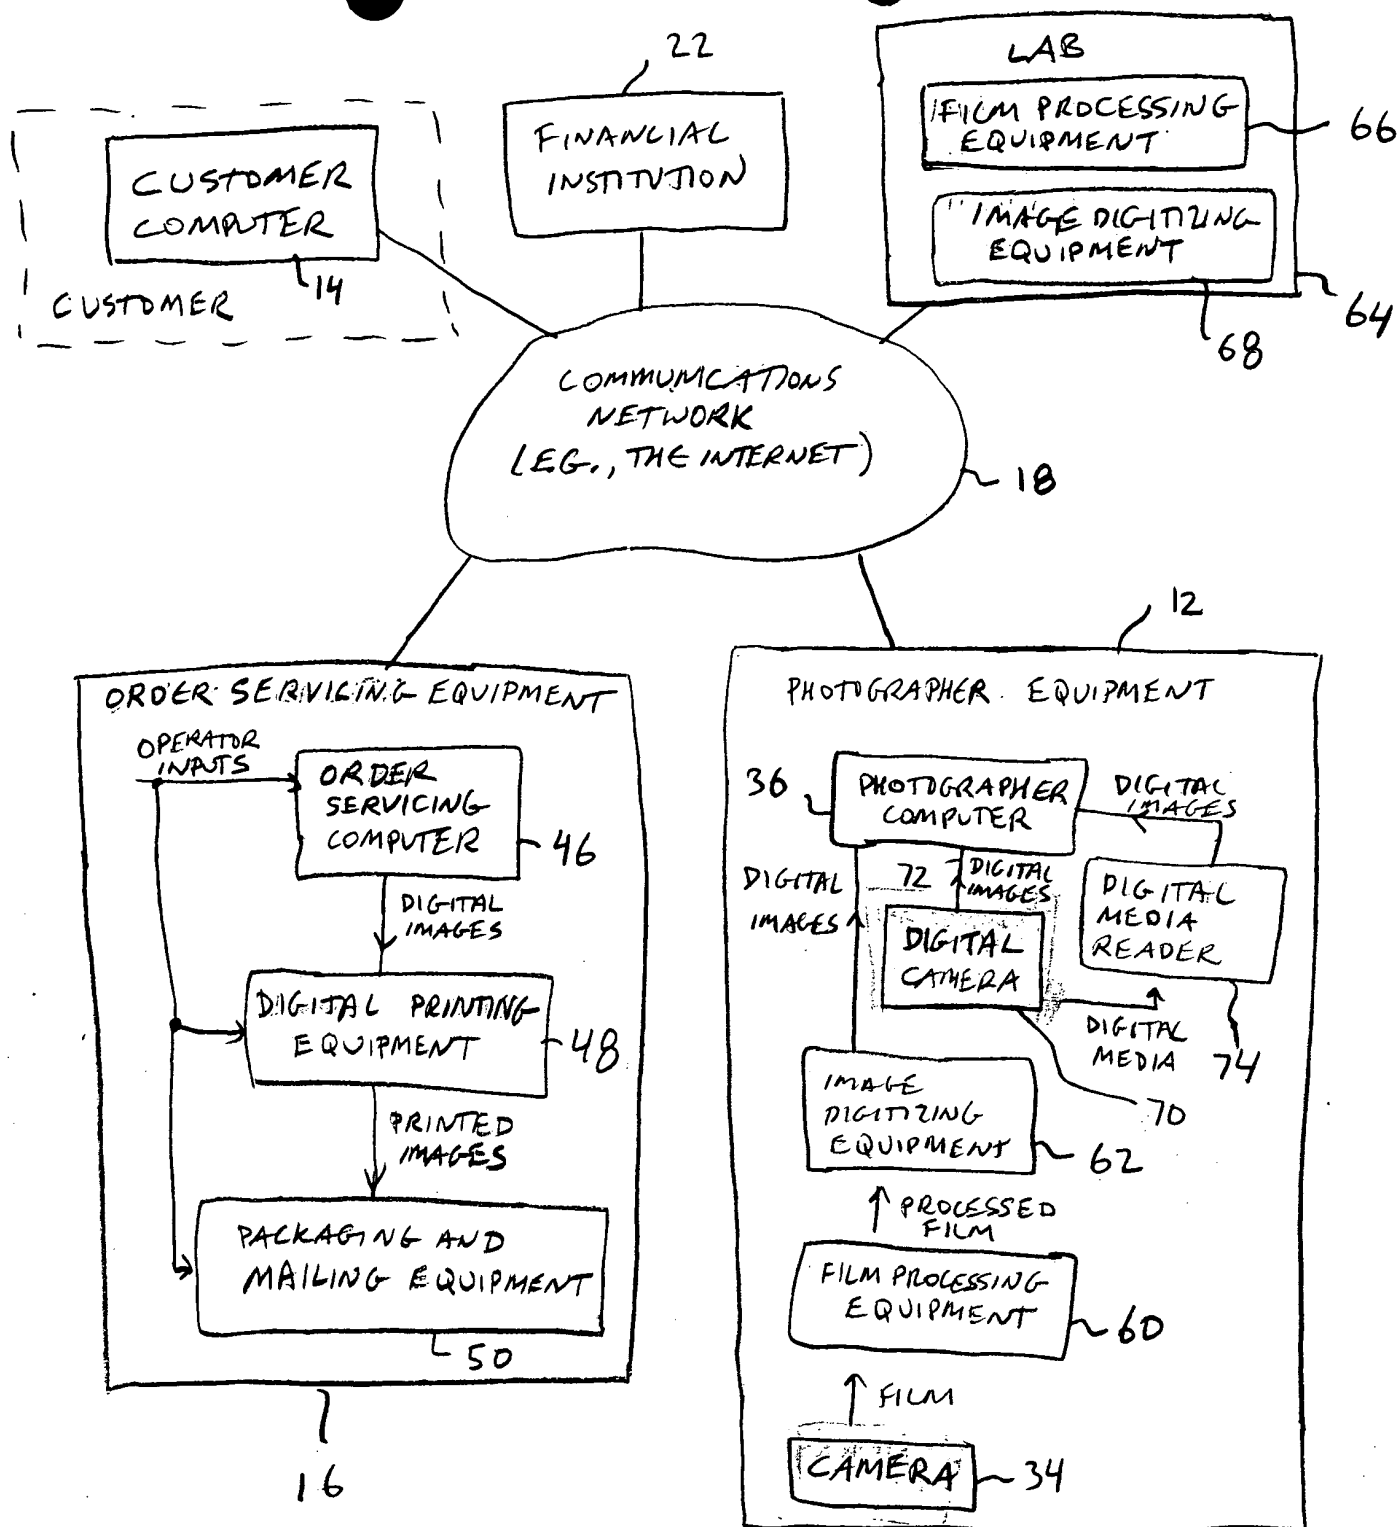 22
LAB
FILM PROCESSING
EQUIPMENT
66
FINANCIAL
INSTITUTION
CUSTOMER
COMPUTER
14
CUSTOMER
IMAGE DIGITIZING
EQUIPMENT
64
68
COMMUNICATIONS
NETWORK
(E.G., THE INTERNET)
18
12
ORDER SERVICING EQUIPMENT
OPERATOR
INPUTS
ORDER
SERVICING
COMPUTER
46
DIGITAL
IMAGES
DIGITAL PRINTING
EQUIPMENT
48
PRINTED
IMAGES
PACKAGING AND
MAILING EQUIPMENT
50
16
PHOTOGRAPHER EQUIPMENT
36
PHOTOGRAPHER
COMPUTER
DIGITAL
IMAGES
DIGITAL
IMAGES
72
DIGITAL
IMAGES
DIGITAL
MEDIA
READER
DIGITAL
CAMERA
DIGITAL
MEDIA
74
70
IMAGE
DIGITIZING
EQUIPMENT
62
PROCESSED
FILM
FILM PROCESSING
EQUIPMENT
60
FILM
CAMERA
34